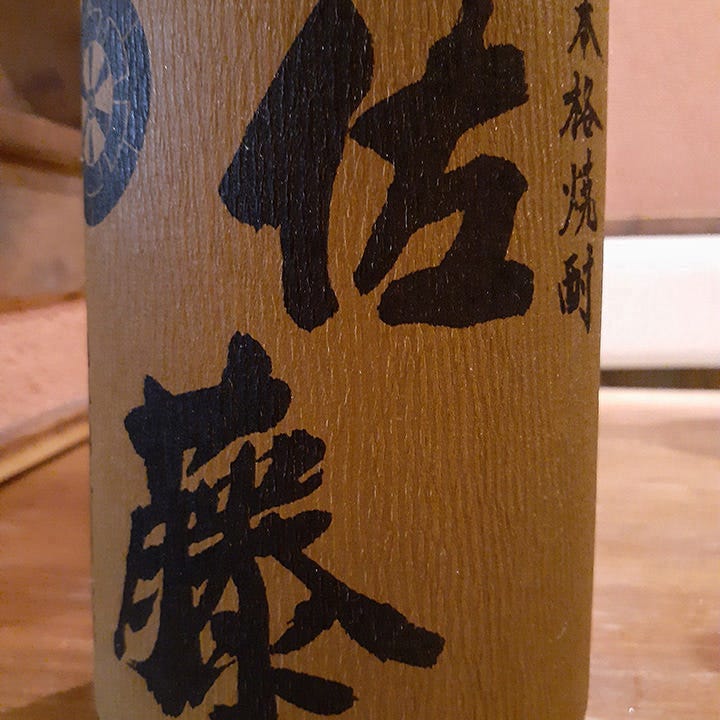 本格焼酎
佐藤